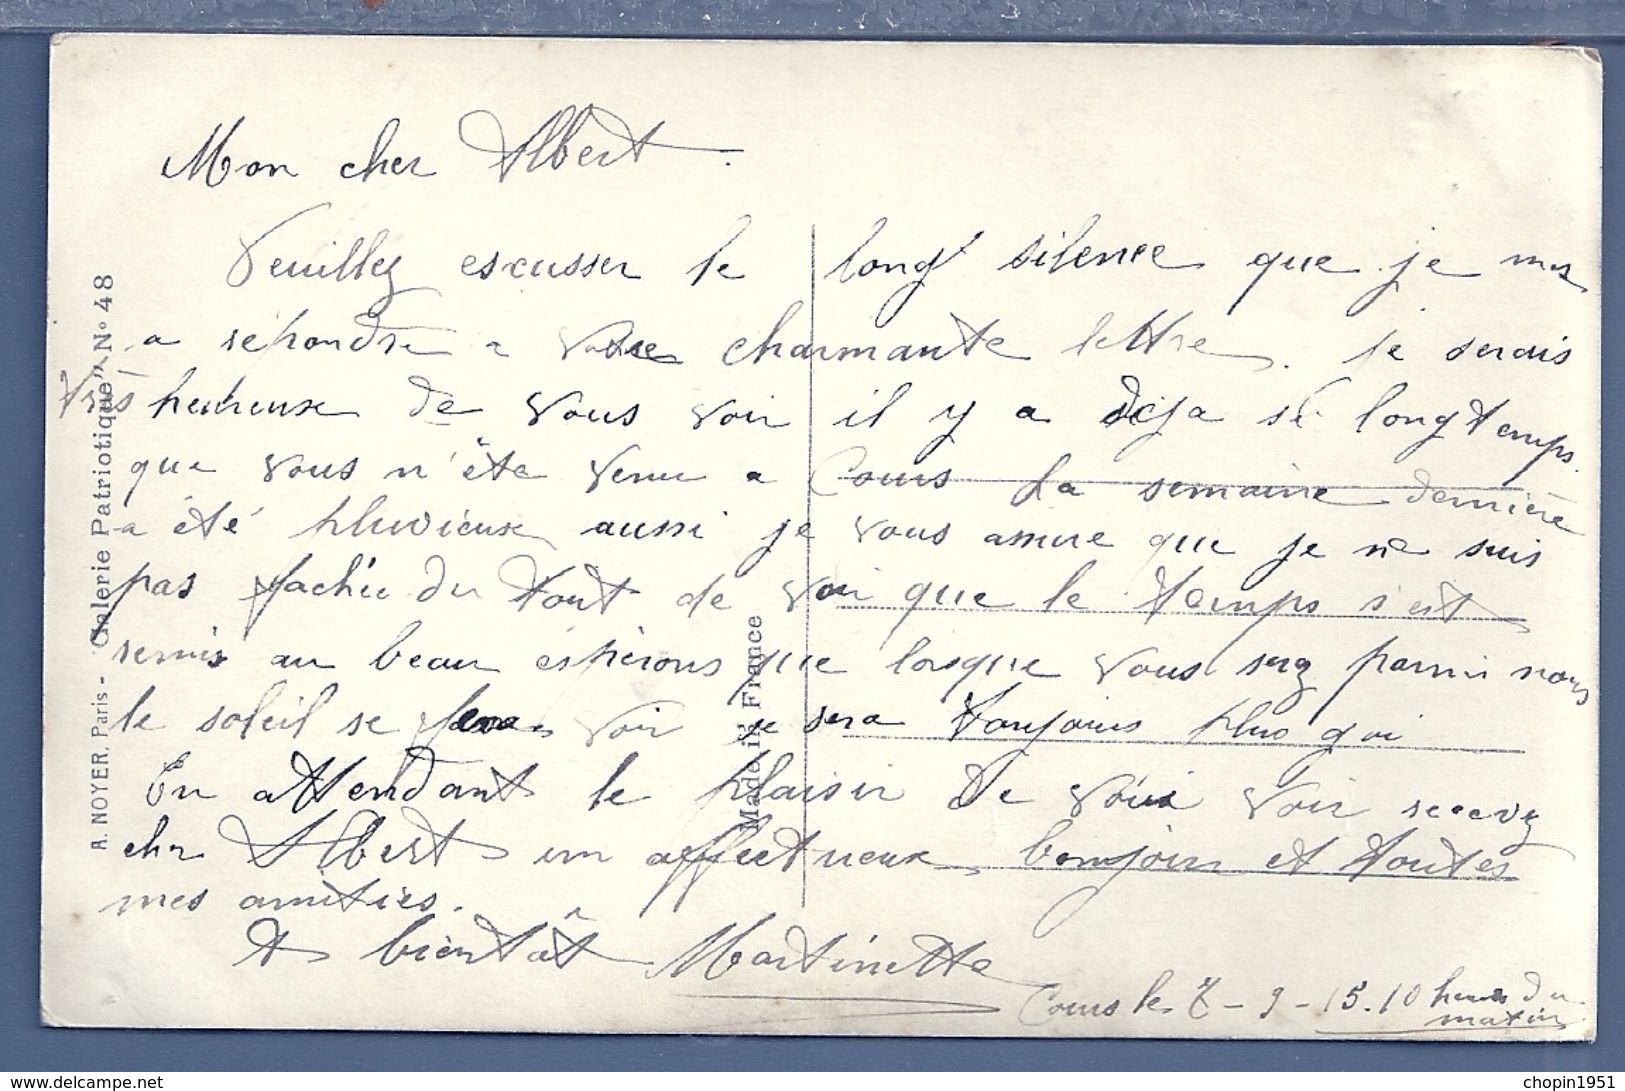 Mon cher Albert.
Veuillez escusser le long silence que je mes
a répondre a votre charmante lettre. je serais
très heureuse de vous voir il y a déja si longtemps.
que vous n'ète venu a Cours La semaine dernière
a été pluvieuse aussi je vous assure que je ne suis
pas fachée du tout de voir que le temps s'est
remis au beau espérons que lorsque vous serz parmi nous
le soleil se fera voir se sera toujours plus gai
En attendant le plaisir de vous voir recevez
cher Albert un affectueux bonjour et toutes
mes amitiés.
A bientôt Martinette
Cours le 7-9-15. 10 heures du
matin
A. NOYER. Paris - "Galerie Patriotique" No 48
Made in France
http://www.delcampe.net
chopin1951